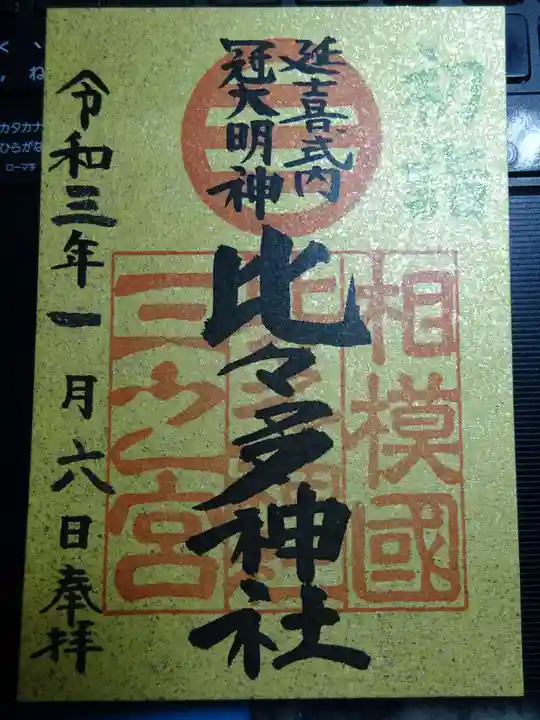 延喜式内
冠大明神
比々多神社
令和三年一月六日奉拝
相模國
三之宮
カタカナ
ひらがな
ローマ字
ね